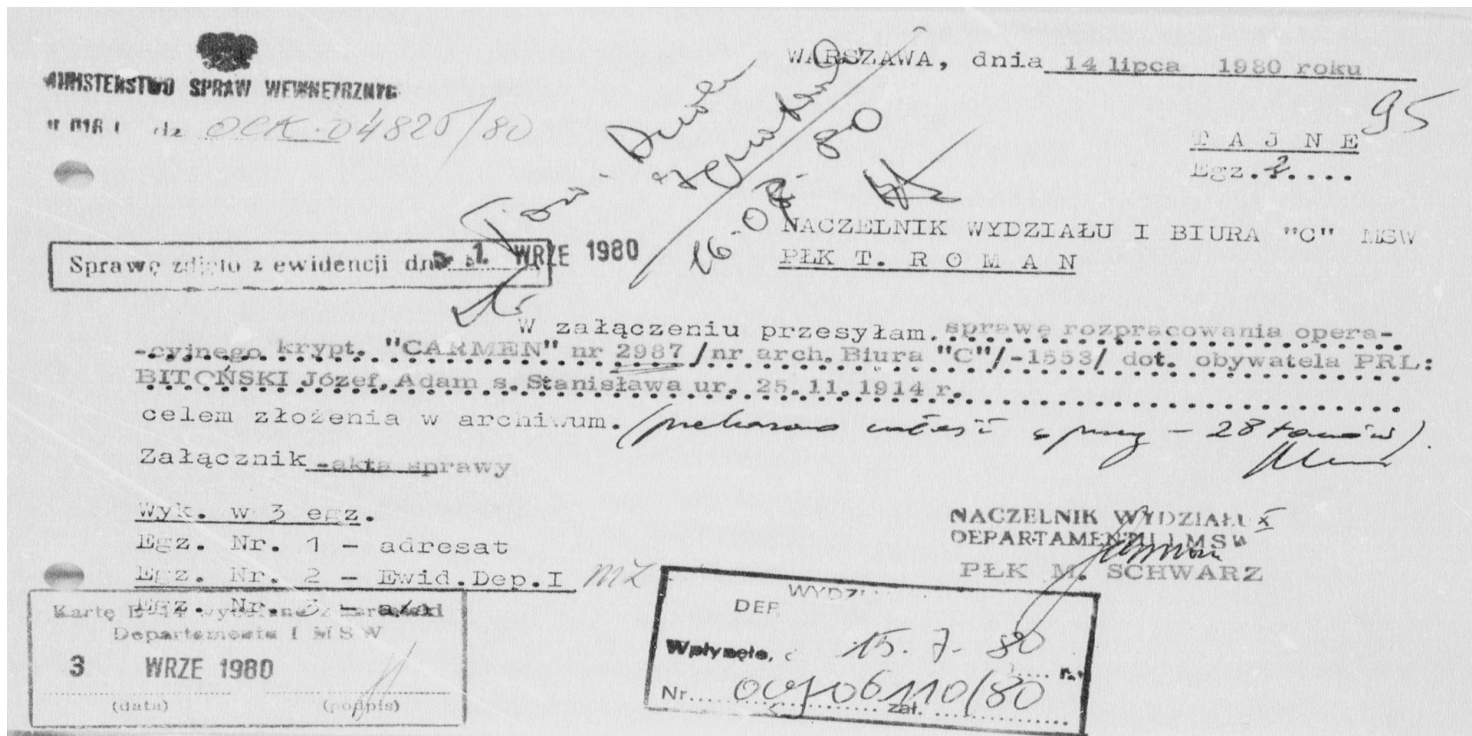 WARSZAWA, dnia 14 lipca 1980 roku
MINISTERSTWO SPRAW WEWNĘTRZNYC
OCK-04825/80
95
T A J N E
Egz. 2
Tow.
16.07.80
NACZELNIK WYDZIAŁU I BIURA "C" MSW
PŁK T. R O M A N
Sprawę zdjęto z ewidencji dn. 1. WRZE 1980
W załączeniu przesyłam sprawę rozpracowania opera-
-cyjnego krypt. "CARMEN" nr 2987 /nr arch. Biura "C"/-1553/ dot. obywatela PRL:
BITOŃSKI Józef, Adam s. Stanisława ur. 25.11.1914 r.
celem złożenia w archiwum. (przekazano całość sprawy - 28 tomów).
Załącznik -akta sprawy
Wyk. w 3 egz.
Egz. Nr. 1 - adresat
Egz. Nr. 2 - Ewid.Dep.I
Egz. Nr. 3 - a/a
NACZELNIK WYDZIAŁU X
DEPARTAMENTU I MSW
PŁK M. SCHWARZ
Kartę E-14 z kartoteki
Departamentu I MSW
3 WRZE 1980
(data) (podpis)
DEP.
Wpłynęło, 15. 7. 80 r.
Nr. 06110/80
zał.